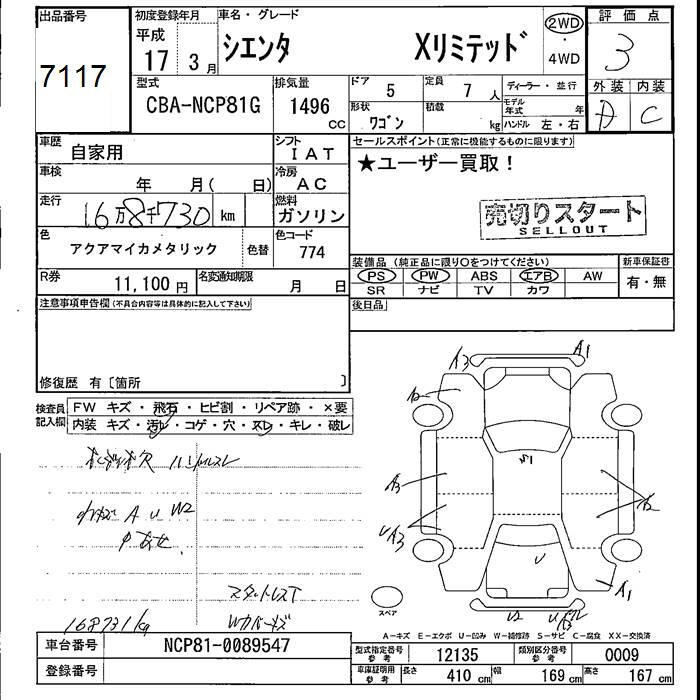 出品番号
7117
初度登録年月
平成
17 3 月
車名・グレード
シエンタ Xリミテッド
2WD
・
4WD
評価点
3
型式
CBA-NCP81G
排気量
1496
CC
ドア
5
定員
7 人
形状
ワゴン
積載
kg
ディーラー・並行
モデル
年式 年
ハンドル 左・右
外装 内装
D C
車歴
自家用
シフト
IAT
セールスポイント(正常に機能するものに限ります)
★ユーザー買取！
車検
年 月( 日)
冷房
AC
走行
16万8千730 km
燃料
ガソリン
売切りスタート
SELLOUT
色
アクアマイカメタリック
色替
色コード
774
装備品 (純正品に限り○をつけてください)
PS PW ABS エアB AW
SR ナビ TV カワ
新車保証書
有・無
R券
11,100 円
名変通知期限
月 日
後日品
注意事項申告欄(不具合内容等は具体的に記入して下さい)
修復歴 有〔箇所 〕
検査員
記入欄
FW キズ・飛石・ヒビ割・リペア跡・×要
内装 キズ・汚れ・コゲ・穴・スレ・キレ・破レ
ハンドルスレ
A U W2
168731kg
A3
A1
S1
A3
UA3
A2
U
A1
U2
スペア
A-キズ E-エクボ U-凹み W-補修跡 S-サビ C-腐食 XX-交換済
車台番号
NCP81-0089547
登録番号
型式指定番号
参考
12135
類別区分番号
参考
0009
車庫証明用
参考
長さ
410 cm
幅
169 cm
高さ
167 cm